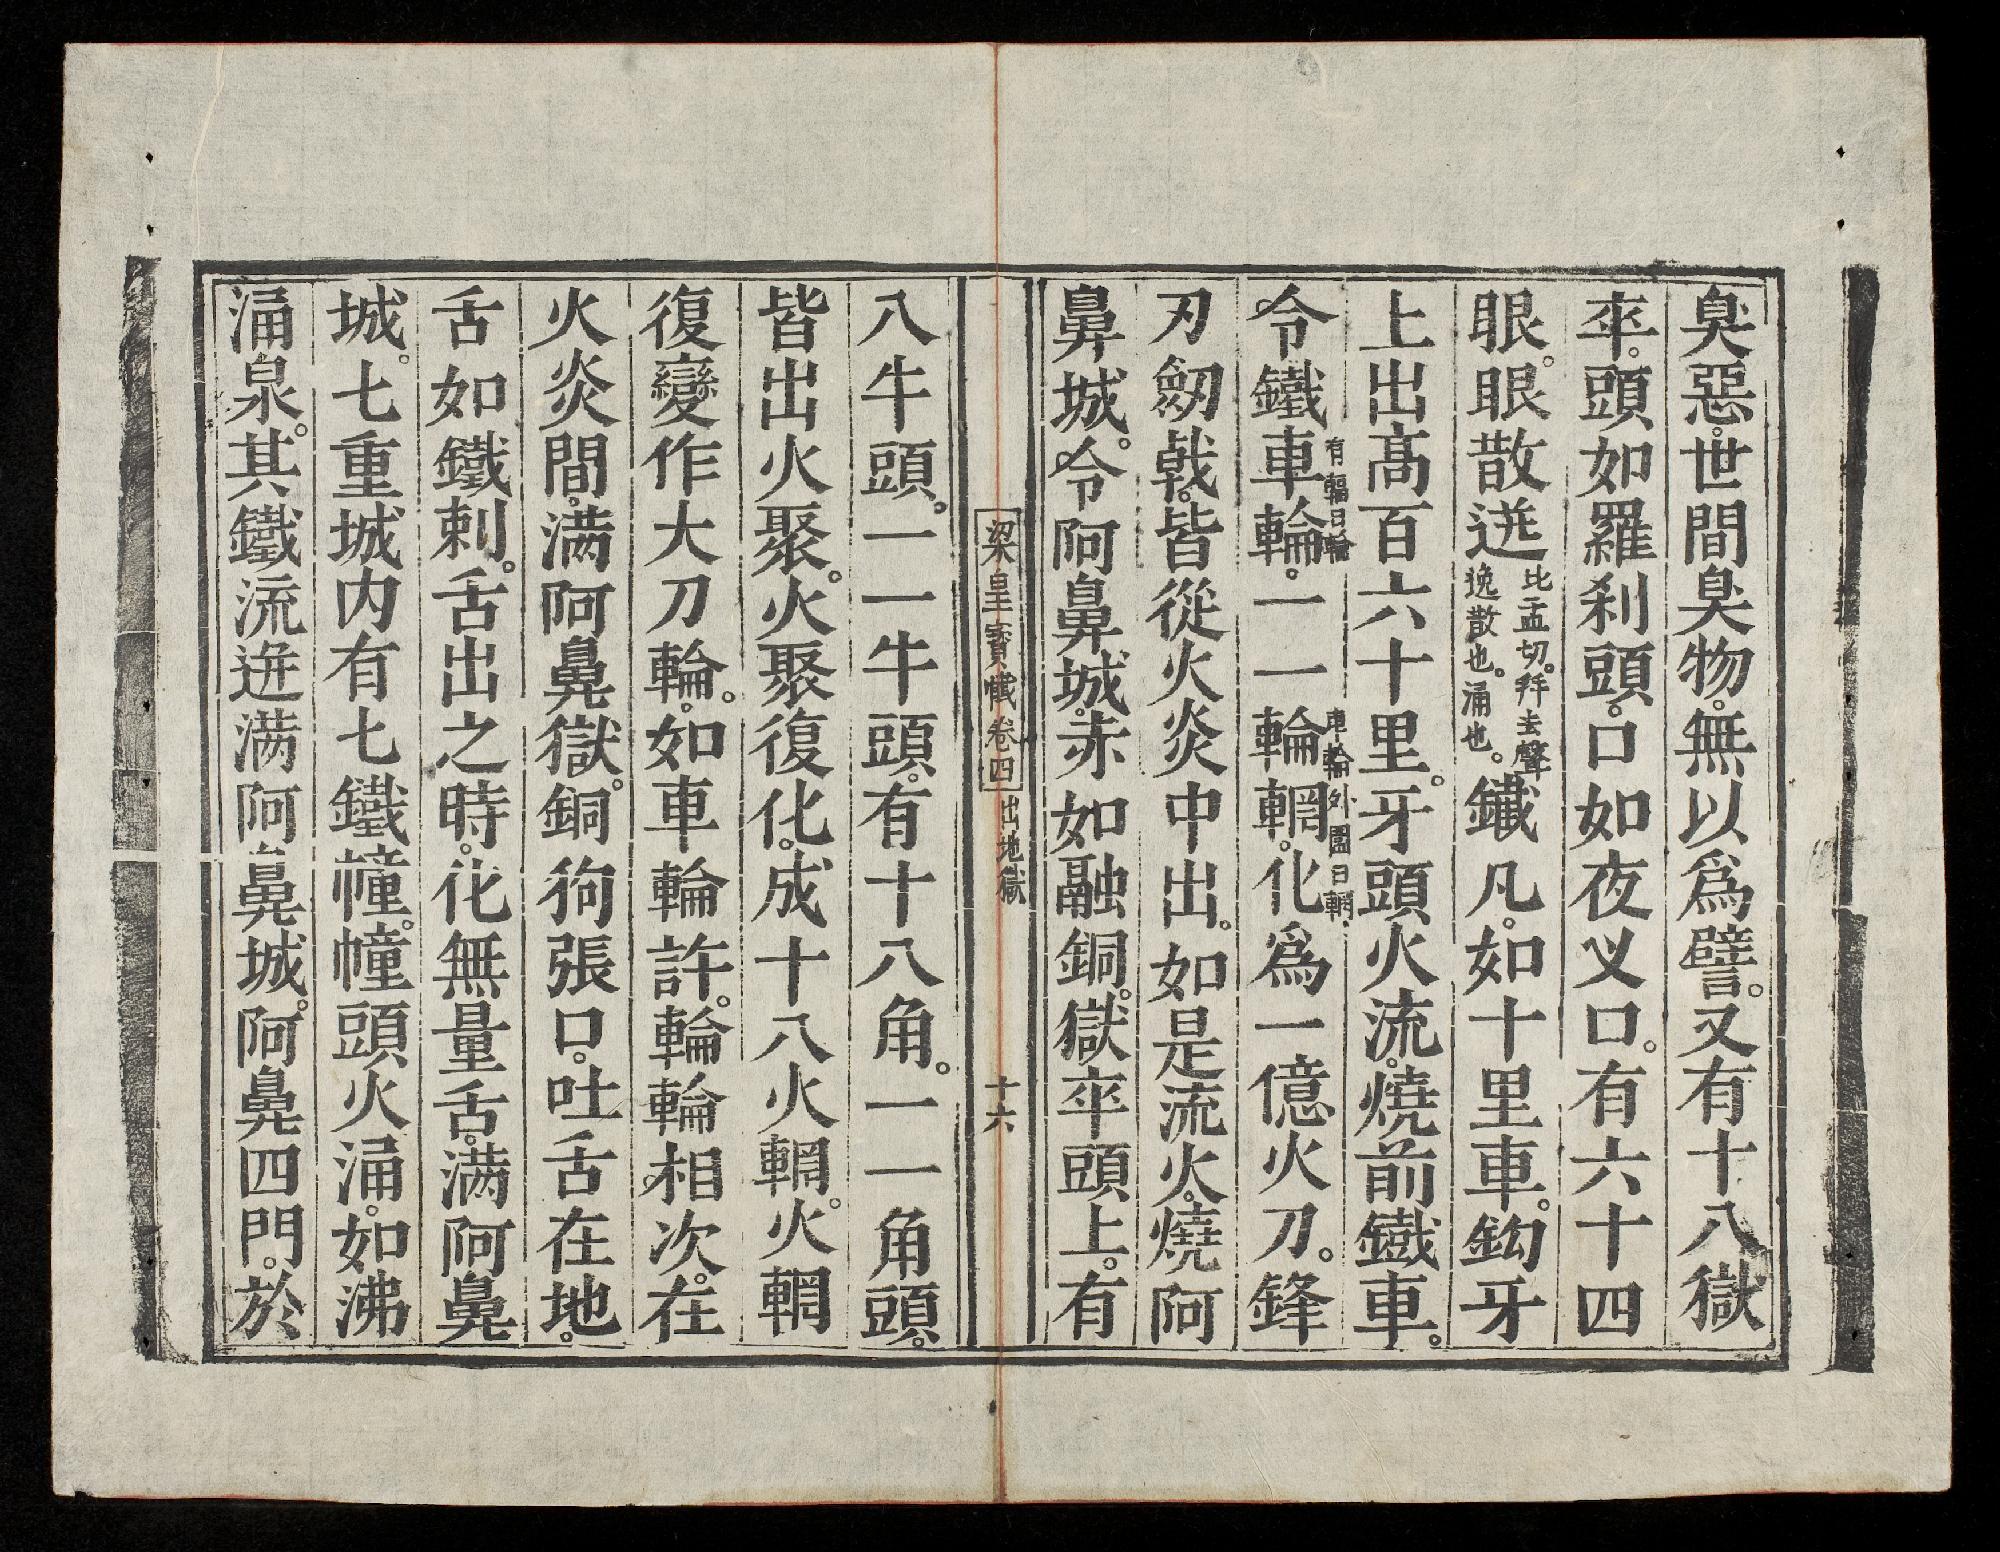 臭惡。世間臭物。無以爲譬。又有十八獄
卒。頭如羅刹頭。口如夜叉口。有六十四
眼。眼散迸比孟切。拜去聲逸散也。涌也。鐵凡。如十里車。鈎牙
上出高百六十里。牙頭火流。燒前鐵車。
令鐵車輪。有輻曰輪一一輪輞。車輪外圍曰輞化爲一億火刀。鋒
刃劒戟。皆從火炎中出。如是流火。燒阿
鼻城。令阿鼻城。赤如融銅。獄卒頭上。有
梁皇寶懺卷四 出地獄 十六
八牛頭。一一牛頭。有十八角。一一角頭。
皆出火聚。火聚復化。成十八火輞。火輞
復變作大刀輪。如車輪許。輪輪相次。在
火炎間。滿阿鼻獄。銅狗張口。吐舌在地。
舌如鐵刺。舌出之時。化無量舌。滿阿鼻
城。七重城内有七鐵幢。幢頭火涌。如沸
涌泉。其鐵流迸滿阿鼻城。阿鼻四門。於